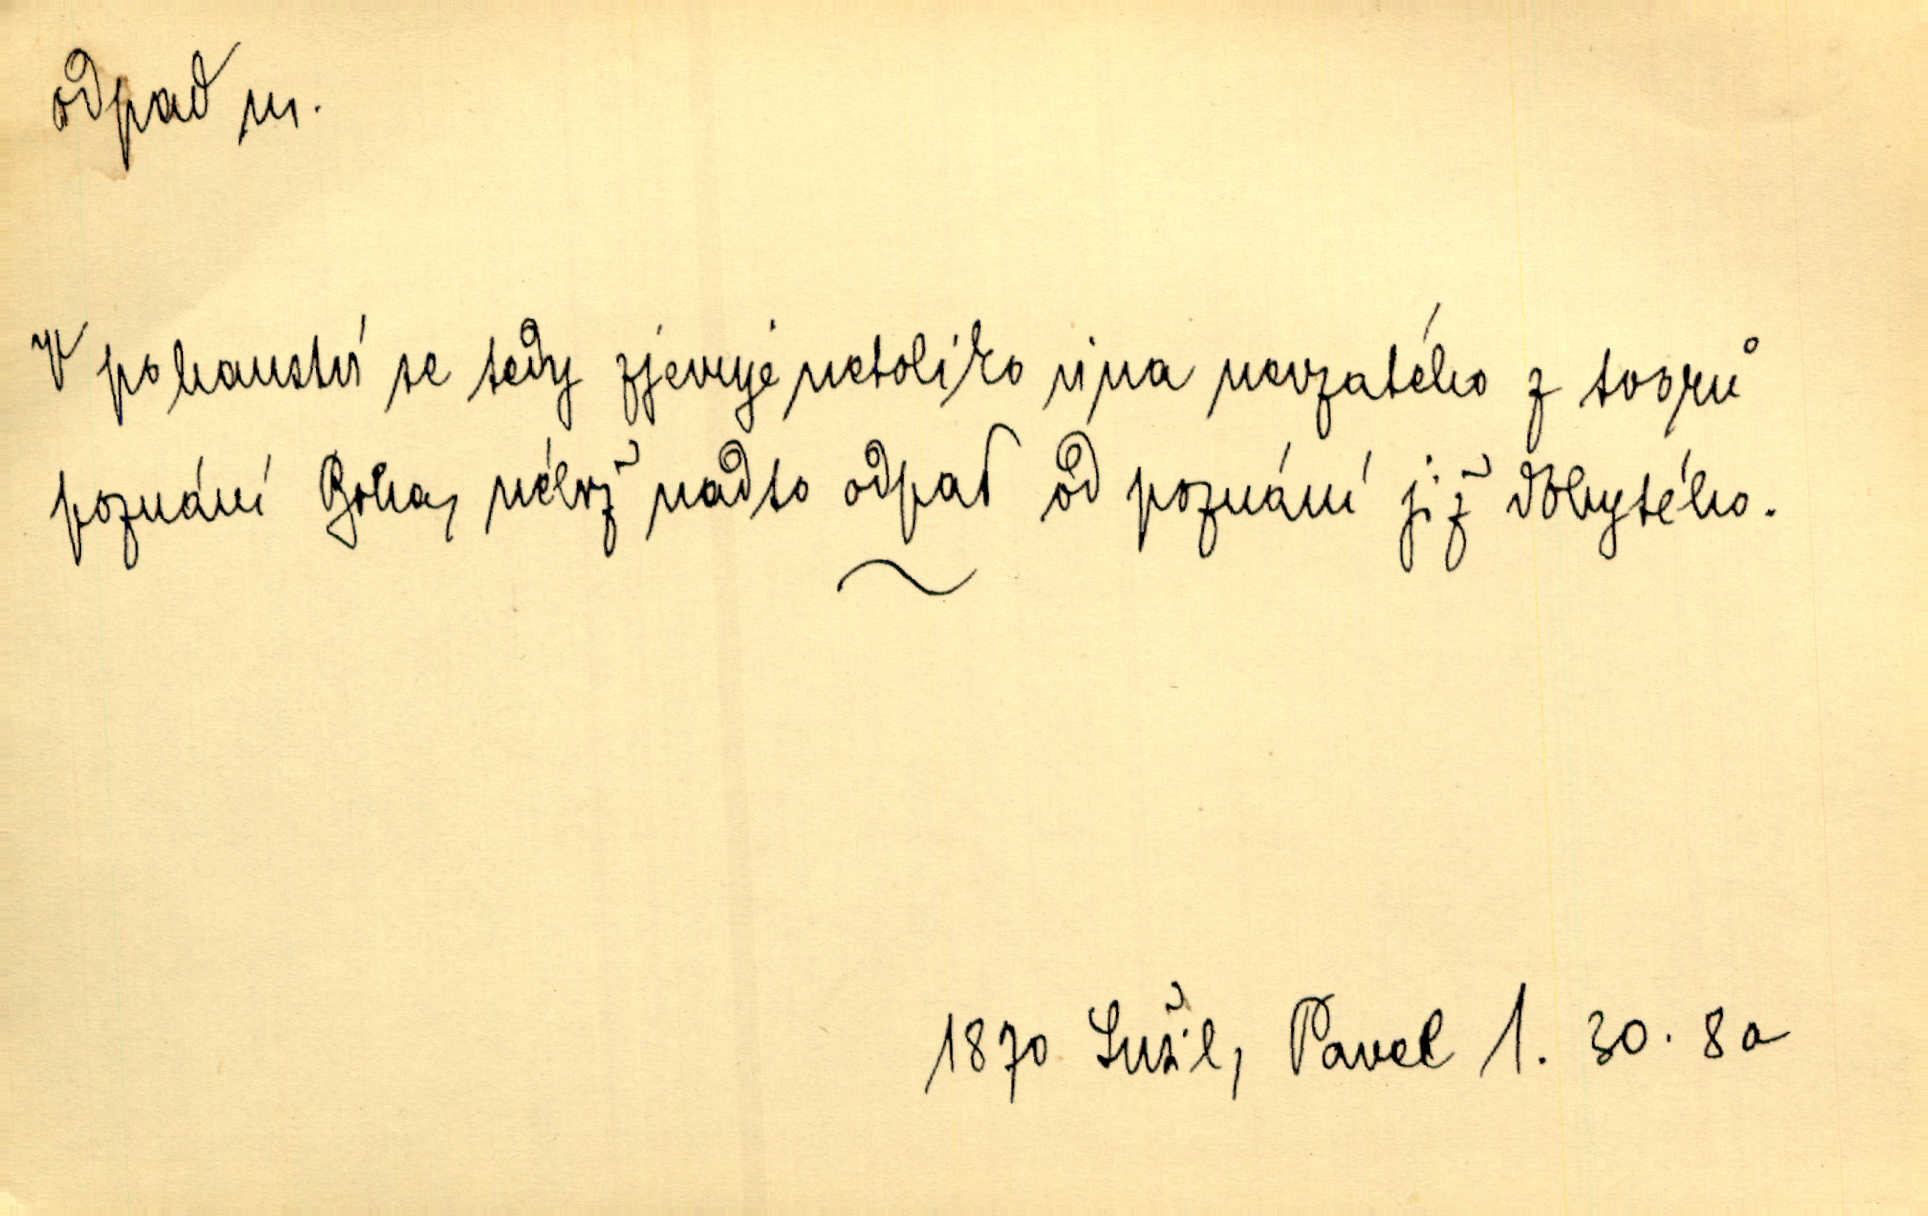 odpad m.
V pohanství se tedy zjevuje netoliko vina nevzatého z tvorů
poznání Boha, nébrž nadto odpad od poznání již dobytého.
1870 Sušil, Pavel 1. 30. 8a